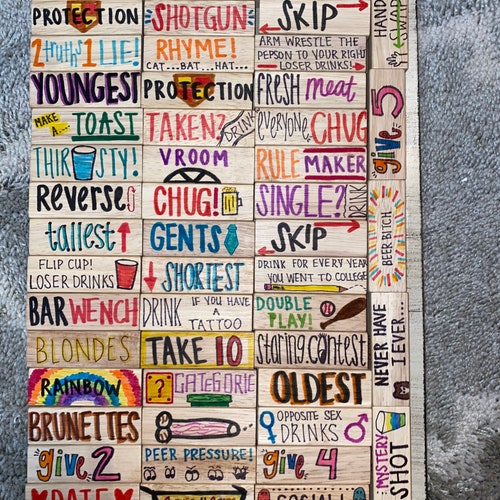 PROTECTION
SHOTGUN
SKIP
HAND SWAP
2 truths 1 LIE!
RHYME!
CAT...BAT...HAT...
ARM WRESTLE THE
PERSON TO YOUR RIGHT
LOSER DRINKS!
YOUNGEST
PROTECTION
FRESH meat
give 5
MAKE
A...
TOAST
TAKEN?
DRINK
everyone CHUG
THIRSTY!
VROOM
RULE MAKER
reverse
CHUG!
SINGLE?
DRINK
BEER BITCH
tallest
GENTS
SKIP
FLIP CUP!
LOSER DRINKS
SHORTEST
DRINK FOR EVERY YEAR
YOU WENT TO COLLEGE
BAR WENCH
DRINK IF YOU HAVE
A TATTOO
DOUBLE
PLAY!
NEVER HAVE
I EVER...
BLONDES
TAKE 10
staring contest
RAINBOW
?
CATEGORIE
OLDEST
BRUNETTES
OPPOSITE SEX
DRINKS
MYSTERY
SHOT
give 2
PEER PRESSURE!
give 4
DATE
SOCIAL!